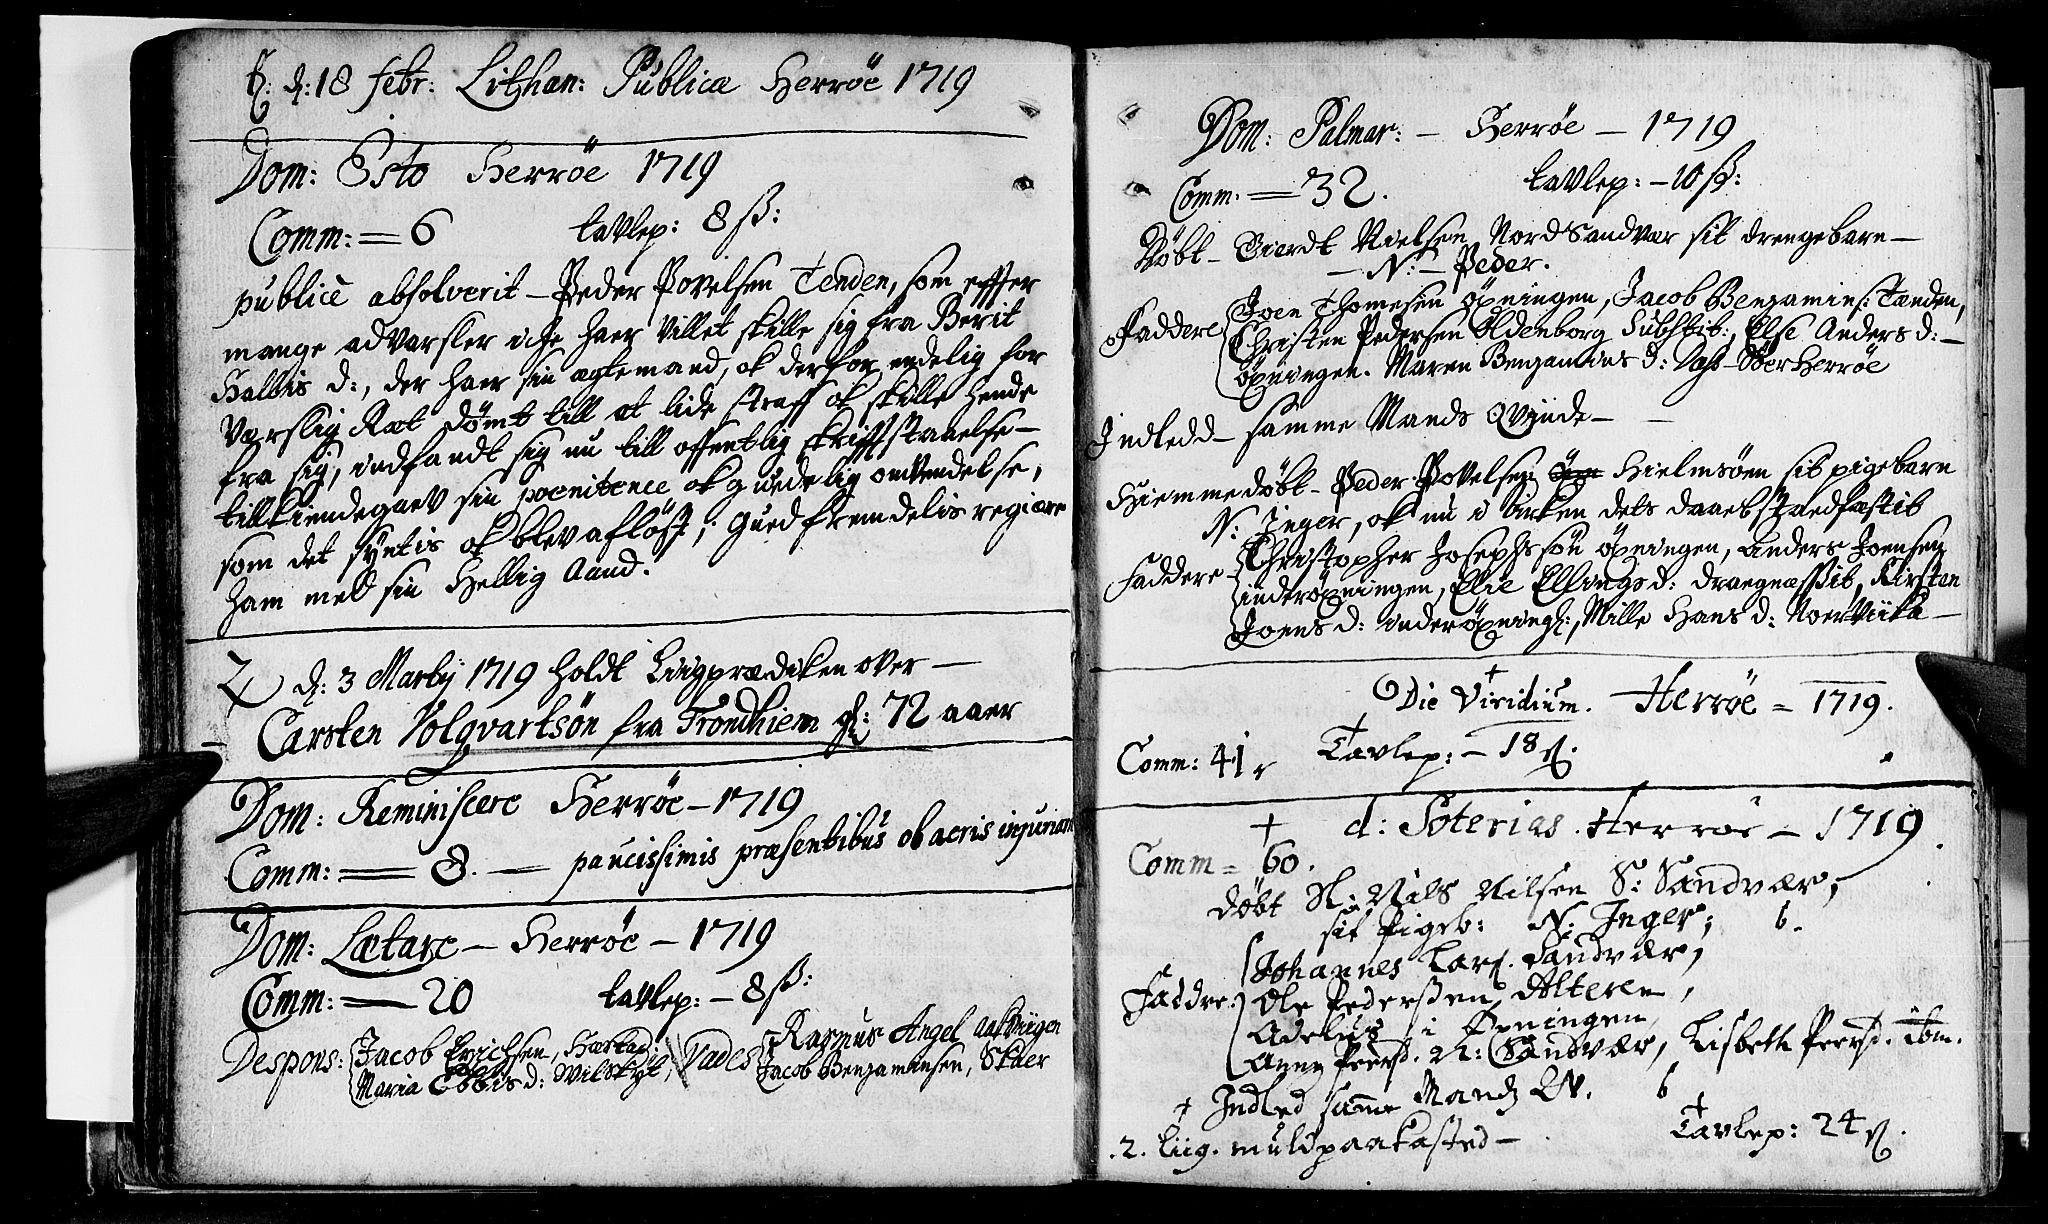 d: 18 febr: Lithan: Publicæ Herröe 1719
Dom: Esto Herröe 1719
Comm: = 6 tavlep: 8 ß:
publicè absolverit – Peder Povelsen Tenden, som effter
mange advarsler icke haer villet skille sig fra Berit
Hallvis d:, der haer sin ægtemand, ok derfor endelig for
Værslig Ræt dømt till at lide straff ok skille hende
fra sig, indfandt sig nu till offentlig skrifftstaaelse –
tillkiendegaev sin poenitence ok gudelig omvendelse,
som det syntis ok blev afløst; Gued fremdelis regiære
ham med sin Hellig Aand.
d: 3 Martij 1719 holdt Liigprædiken over –
Carsten Volqvartsön fra Trondhiem gl: 72 aaer
Dom: Reminiscere Herröe – 1719
Comm: = 8. – paucissimis præsentibus ob aeris injuriam
Dom: Lætare – Herröe – 1719
Comm: – 20 tavlep: – 8 ß:
Despons: Jacob Erichsen, Vades Rasmus Angel
Maria Ebbis d: Jacob Benjaminsen, Skaer
Dom: Palmar: – Herröe – 1719
Comm: = 32. tavlep: – 10 ß:
Döbt – Gierdt Nielsen Nord Sandvær sit drengebarn –
– N: – Peder.
Faddere Joen Thomesen öxningen, Jacob Benjamins: Tænden,
Christen Pedersen Oldenborg Substit:, Else Anders d: –
öxningen. Maren Benjamins d: Herröe
Indledd – samme Mands Qvinde –
Hiemmedöbt – Peder Povelsen Hielmsöen sit pigebarn
N: Inger, ok nu i kirken dets daab stadfæstit
Faddere – Christopher Josephssön öxningen, Anders Joensen
inderöxningen, Elie Ellingsd: draegnæssit, Kirsten
Joens d: inderöxning:, Mille Hans d: Noer Viika –
Die Viridium. Herröe = 1719.
Comm: 41 Tavlep: – 18 ß.
d: Soterias. Herröe – 1719
Comm = 60.
Döbt N: Nils Nilsen S: Sandvær,
sit Pigeb: N: Inger; 6.
Johannes Lars. Sandvær,
Faddre: Ole Pederssen Alteren,
Adelus i Öxningen,
Anne Peersd. N: Sandvær, Lisbeth Peersd. ibm.
+ Indled samme Mandz Qv. 6
.2. liig. muld paakasted – Tavlep: 24 ß.